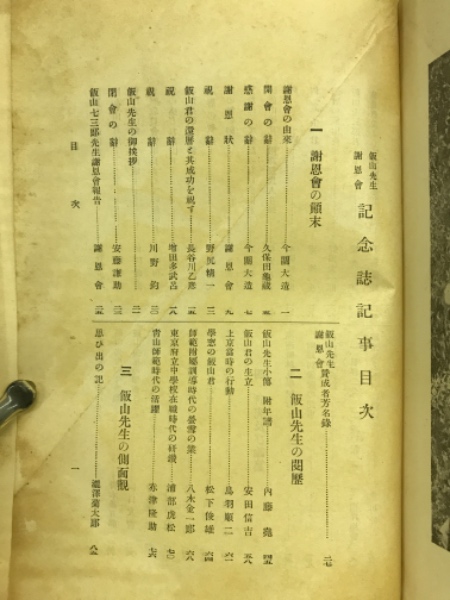 飯山先生
謝恩會
記念誌記事目次
一 謝恩會の顛末
謝恩會の由來 今關大造 一
開會の辭 久保田
感謝の辭 今關大造 七
謝恩狀 謝恩會 九
祝辭 野尻精一 一三
飯山君の還曆と其成功を祝す 長谷川乙彥
祝辭 增田多武呂 一八
祝辭 川野鈞
飯山先生の御挨拶
閉會の辭 安藤謙助
飯山七三郞先生謝恩會報告 謝恩會
飯山先生
謝恩會
贊成者芳名錄 二七
二 飯山先生の閱歷
飯山先生小傳 附年譜 內藤
飯山君の生立 安田信吉 五八
上京當時の行動 鳥羽順二 六一
學窓の飯山君 松下俊雄 六四
師範附屬訓導時代の螢雪の業 八木金一郞 六八
東京府立中學校在職時代の研鑽 浦部虎松 七〇
靑山師範時代の活躍 赤津隆助 七六
三 飯山先生の側面觀
思ひ出の記 瀧澤菊太郞 八五
目次 一